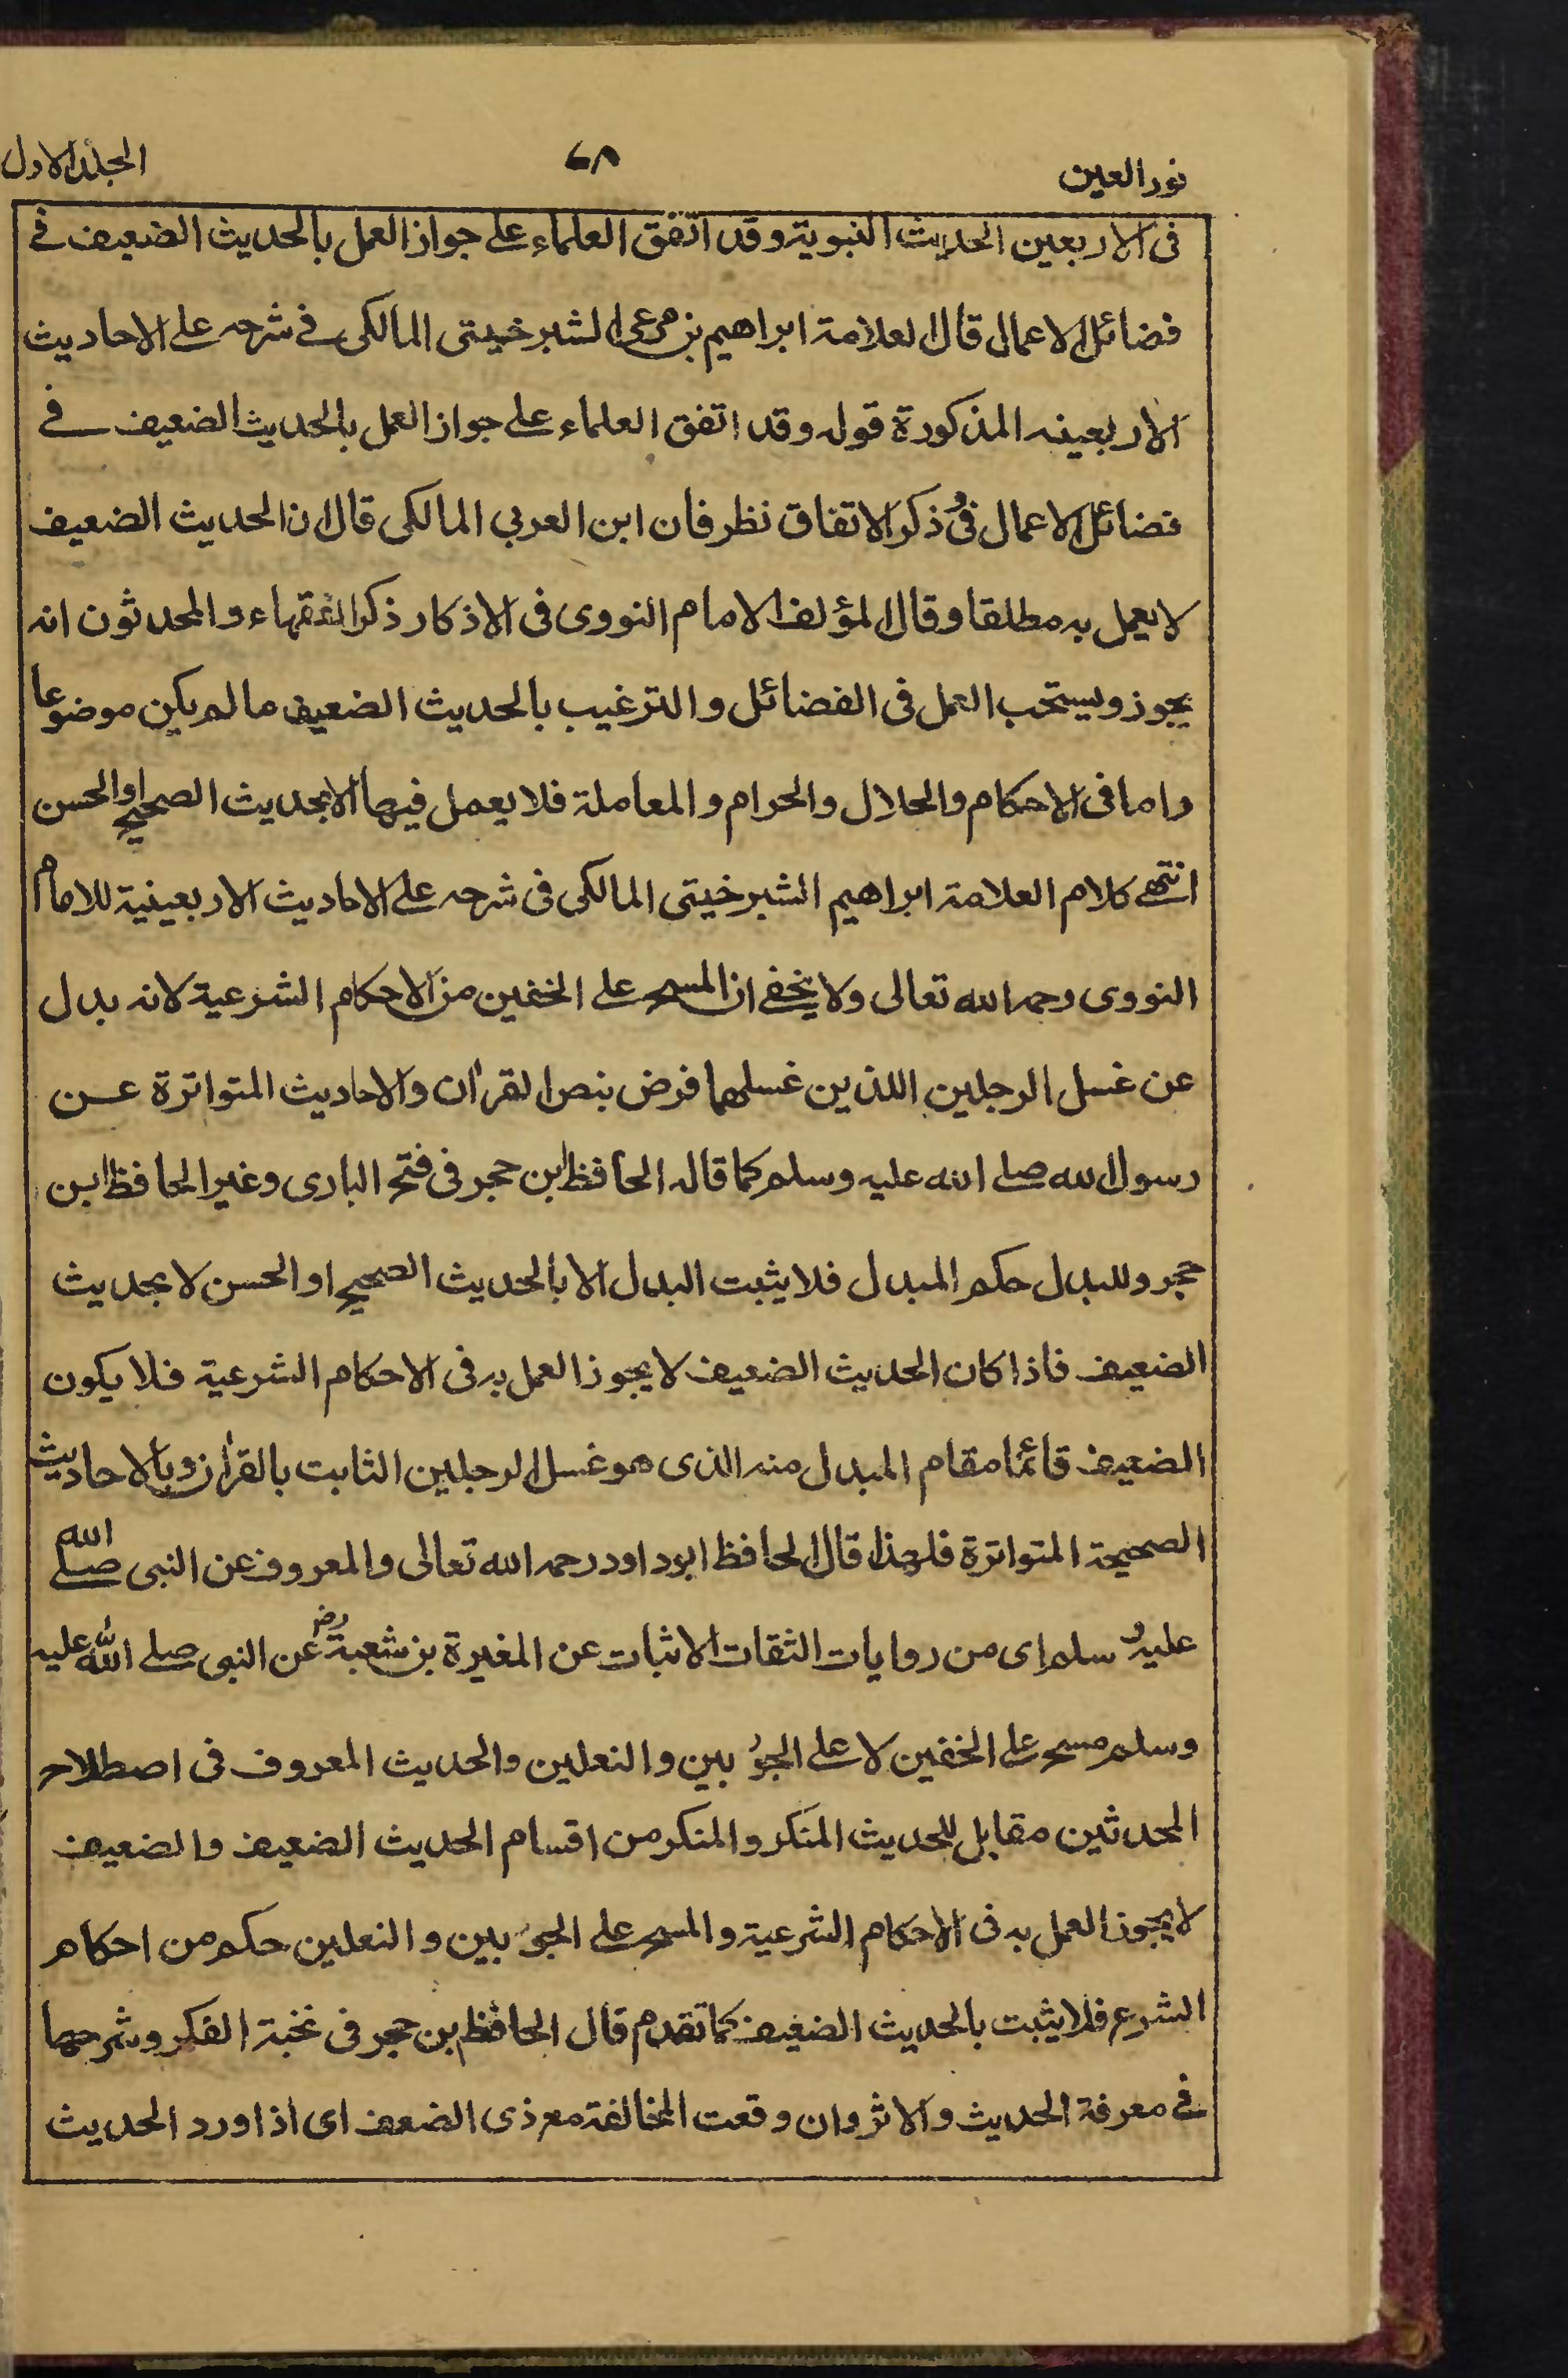 نور العين ٦٨ المجلد الاول
فى الاربعين الحديث النبوية وقد اتفق العلماء على جواز العمل بالحديث الضعيف فے
فضائل الاعمال قال العلامة ابراهيم بن مرعى الشبرخيتى المالكى فے شرحه على الاحاديث
الاربعينه المذكورة قوله وقد اتفق العلماء على جواز العمل بالحديث الضعيف فے
فضائل الاعمال وفى ذكر الاتفاق نظر فان ابن العربي المالكى قال ان الحديث الضعيف
لا يعمل به مطلقا وقال المؤلف الامام النووى فى الاذكار ذكر الفقهاء والمحدثون انه
يجوز ويستحب العمل فى الفضائل والترغيب بالحديث الضعيف ما لم يكن موضوعا
واما فى الاحكام والحلال والحرام والمعاملة فلا يعمل فيها الا بحديث الصحيح او الحسن
انتهے كلام العلامة ابراهيم الشبرخيتى المالكى فى شرحه على الاحاديث الاربعينية للامام
النووى رحمه الله تعالى ولا يخفے ان المسح على الخفين من الاحكام الشرعية لانه بدل
عن غسل الرجلين اللذين غسلهما فرض بنص القران والاحاديث المتواترة عن
رسول الله صلے الله عليه وسلم كما قاله الحافظ ابن حجر فى فتح البارى وغير الحافظ ابن
حجر وللبدل حكم المبدل فلا يثبت البدل الا بالحديث الصحيح او الحسن لا بحديث
الضعيف فاذا كان الحديث الضعيف لا يجوز العمل به فى الاحكام الشرعية فلا يكون
الضعيف قائما مقام المبدل منه الذى هو غسل الرجلين الثابت بالقران وبالاحاديث
الصحيحة المتواترة فلهذا قال الحافظ ابوداود رحمه الله تعالى والمعروف عن النبى صلے الله
عليه وسلم اى من روايات الثقات الاثبات عن المغيرة بن شعبة رض عن النبى صلے الله عليه
وسلم مسح على الخفين لا على الجوربين والنعلين والحديث المعروف فى اصطلاح
المحدثين مقابل للحديث المنكر والمنكر من اقسام الحديث الضعيف والضعيف
لا يجوز العمل به فى الاحكام الشرعية والمسح على الجوربين والنعلين حكم من احكام
الشرع فلا يثبت بالحديث الضعيف كما تقدم قال الحافظ بن حجر فى نخبة الفكر وشرحها
فے معرفة الحديث والاثر وان وقعت المخالفة مع ذى الضعف اى اذا ورد الحديث